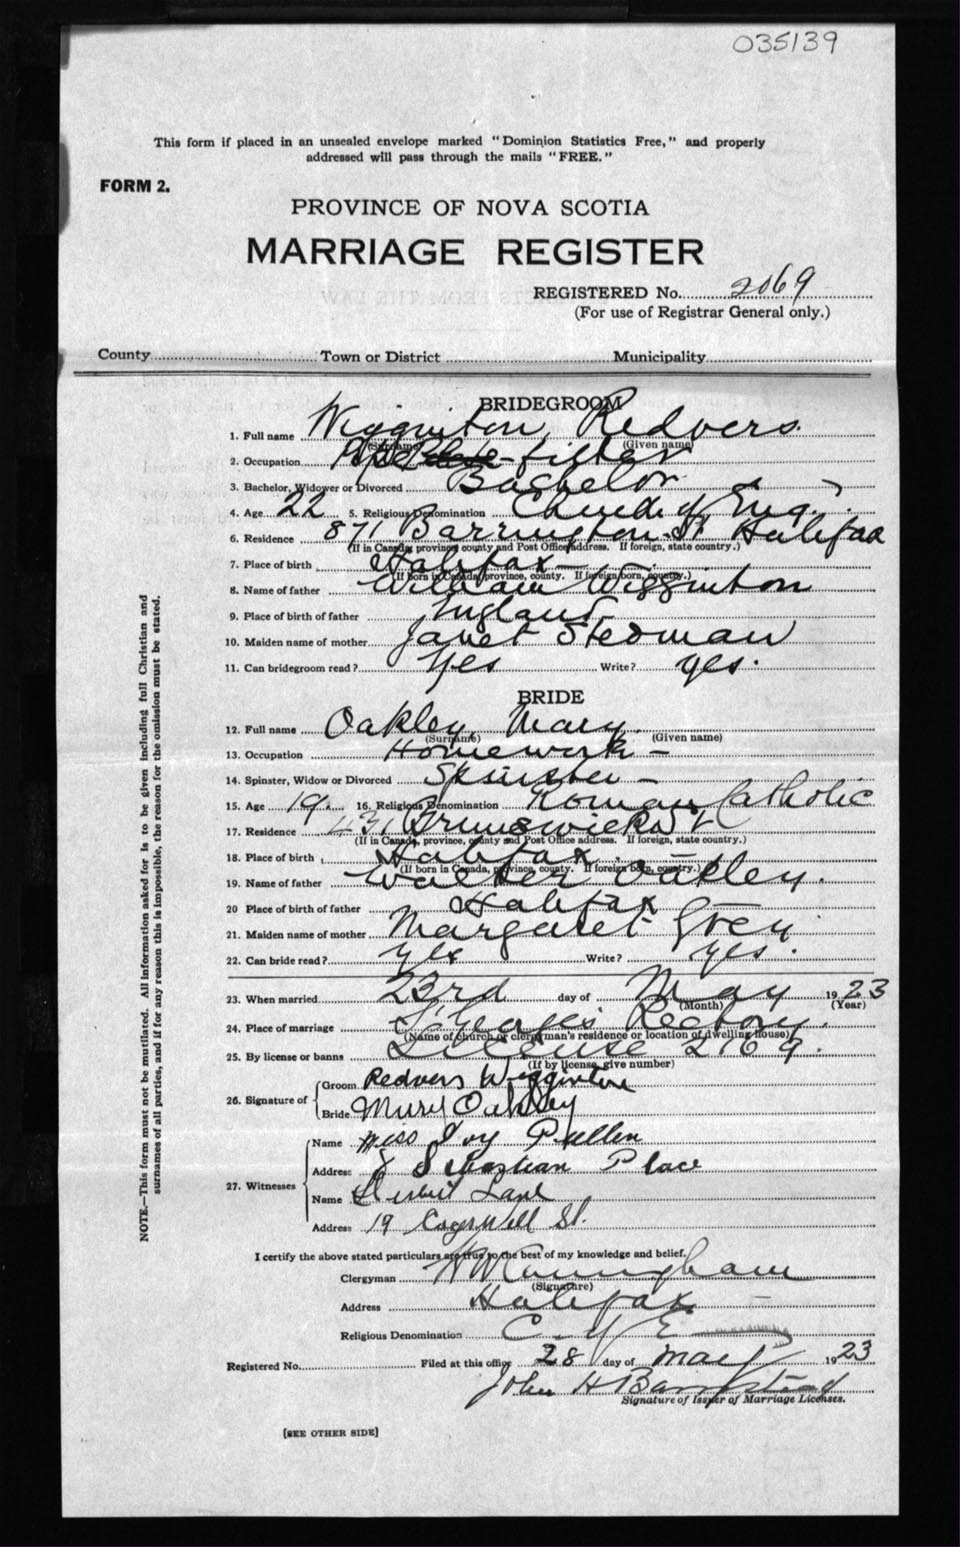 035139
This form if placed in an unsealed envelope marked "Dominion Statistics Free," and properly
addressed will pass through the mails "FREE."
FORM 2.
PROVINCE OF NOVA SCOTIA
MARRIAGE REGISTER
REGISTERED No. 2069
(For use of Registrar General only.)
County Town or District Municipality
BRIDEGROOM
1. Full name Wigginton, Redvers.
(Surname) (Given name)
2. Occupation Pipe-fitter
3. Bachelor, Widower or Divorced Bachelor
4. Age 22 5. Religious Denomination Church of Eng.
6. Residence 871 Barrington St Halifax
(If in Canada, province, county and Post Office address. If foreign, state country.)
7. Place of birth Halifax
(If born in Canada, province, county. If foreign born, country.)
8. Name of father William Wigginton
9. Place of birth of father England
10. Maiden name of mother Janet Stedman
11. Can bridegroom read? Yes Write? yes.
BRIDE
12. Full name Oakley, Mary.
(Surname) (Given name)
13. Occupation Homework -
14. Spinster, Widow or Divorced Spinster -
15. Age 19. 16. Religious Denomination Roman Catholic
17. Residence 431 Brunswick St
(If in Canada, province, county and Post Office address. If foreign, state country.)
18. Place of birth Halifax
(If born in Canada, province, county. If foreign born, country.)
19. Name of father Walter Oakley.
20 Place of birth of father Halifax
21. Maiden name of mother Margaret Grey
22. Can bride read? yes Write? yes.
23. When married 23rd day of May 1923
(Month) (Year)
24. Place of marriage St George's Rectory.
(Name of church or clergyman's residence or location of dwelling house)
25. By license or banns License 2169.
(If by license, give number)
26. Signature of
Groom Redvers Wigginton
Bride Mary Oakley
27. Witnesses
Name Miss Ivy Pullen
Address 8 Sebastian Place
Name Lane
Address 19 Cogswell St.
I certify the above stated particulars are true to the best of my knowledge and belief.
Clergyman H W Cunningham
(Signature)
Address Halifax
Religious Denomination C of E
Registered No. Filed at this office 28 day of May 1923
John H Barnstead
Signature of Issuer of Marriage Licenses.
[SEE OTHER SIDE]
NOTE.—This form must not be mutilated. All information asked for is to be given including full Christian and
surnames of all parties, and if for any reason this is impossible, the reason for the omission must be stated.